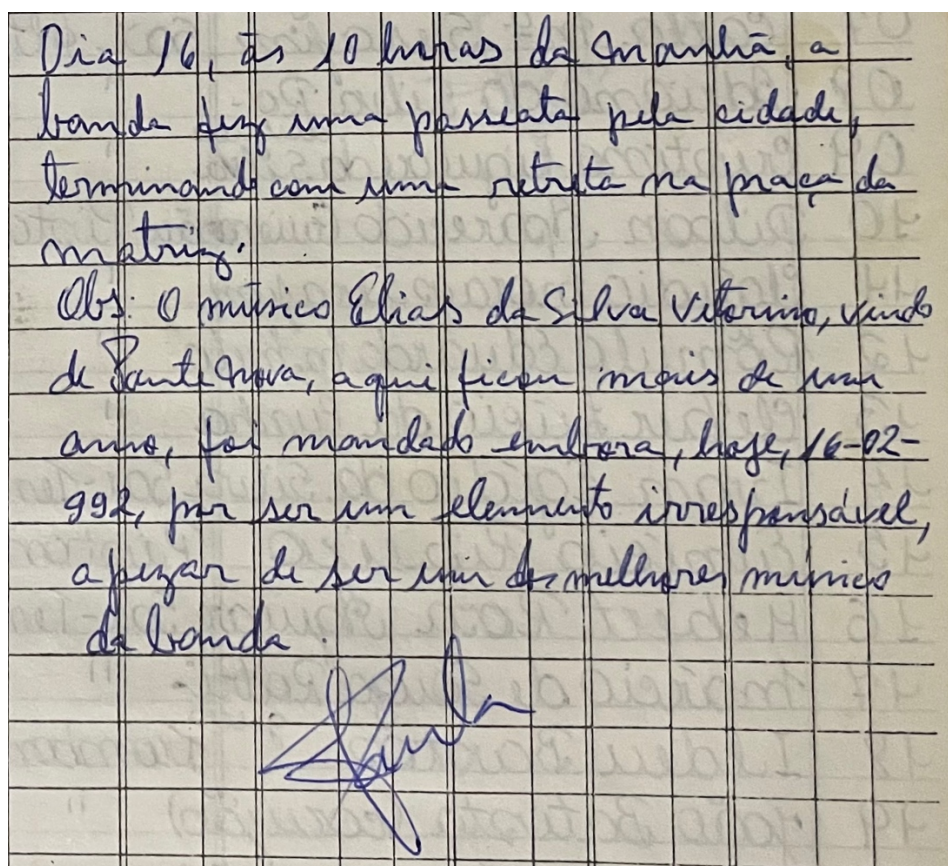 Dia 16, às 10 horas da manhã, a
banda fez uma passeata pela cidade,
terminando com uma retreta na praça da
matriz.
Obs: O músico Elias da Silva Vitorino, vindo
de Ponte Nova, aqui ficou mais de um
ano, foi mandado embora, hoje, 16-02-
992, por ser um elemento irresponsável,
apezar de ser um dos melhores músico
da banda.